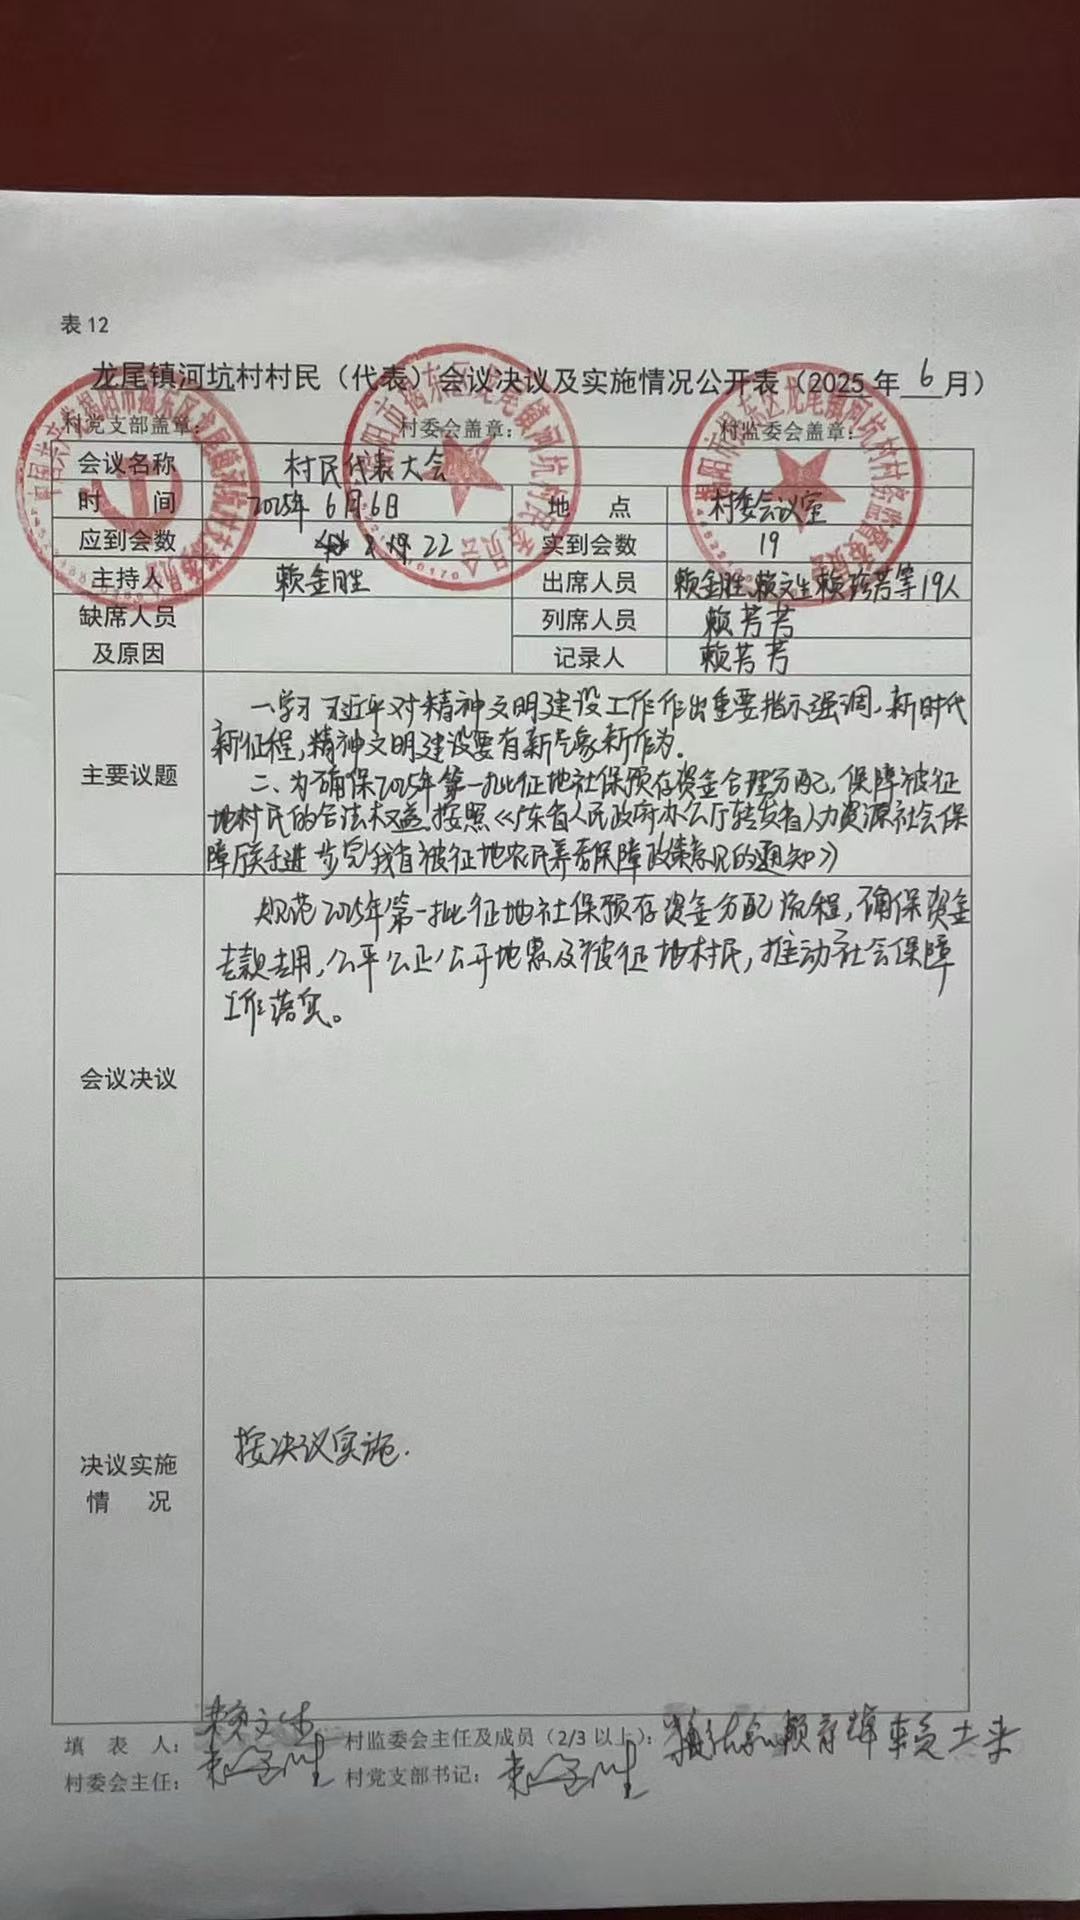 表12
龙尾镇河坑村村民（代表）会议决议及实施情况公开表（2025年 6 月）
村党支部盖章： 村委会盖章： 村监委会盖章：
会议名称 村民代表大会
时 间 2025年6月6日 地 点 村委会议室
应到会数 22 实到会数 19
主持人 赖金胜 出席人员 赖金胜、赖文生、赖 芳等19人
缺席人员及原因 列席人员 赖芳芳
记录人 赖芳芳
主要议题
一、学习习近平对精神文明建设工作作出重要指示强调，新时代
新征程，精神文明建设要有新气象新作为。
二、为确保2025年第一批征地社保预存资金合理分配，保障被征
地村民的合法权益，按照《广东省人民政府办公厅转发省人力资源社会保
障厅关于进步完我省被征地农民养老保障政策意见的通知》
会议决议
规范2025年第一批征地社保预存资金分配流程，确保资金
专款专用，公平公正公开地惠及被征地村民，推动社会保障
工作落实。
决议实施
情 况
按决议实施.
填 表 人： 赖文生 村监委会主任及成员（2/3以上）：
村委会主任： 赖金胜 村党支部书记： 赖金胜